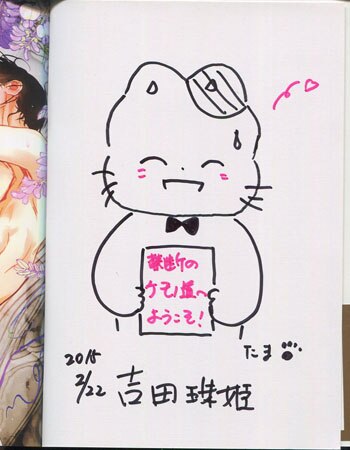 禁断の
ケモノ道へ
ようこそ!
たま
2015
2/22
吉田珠姫